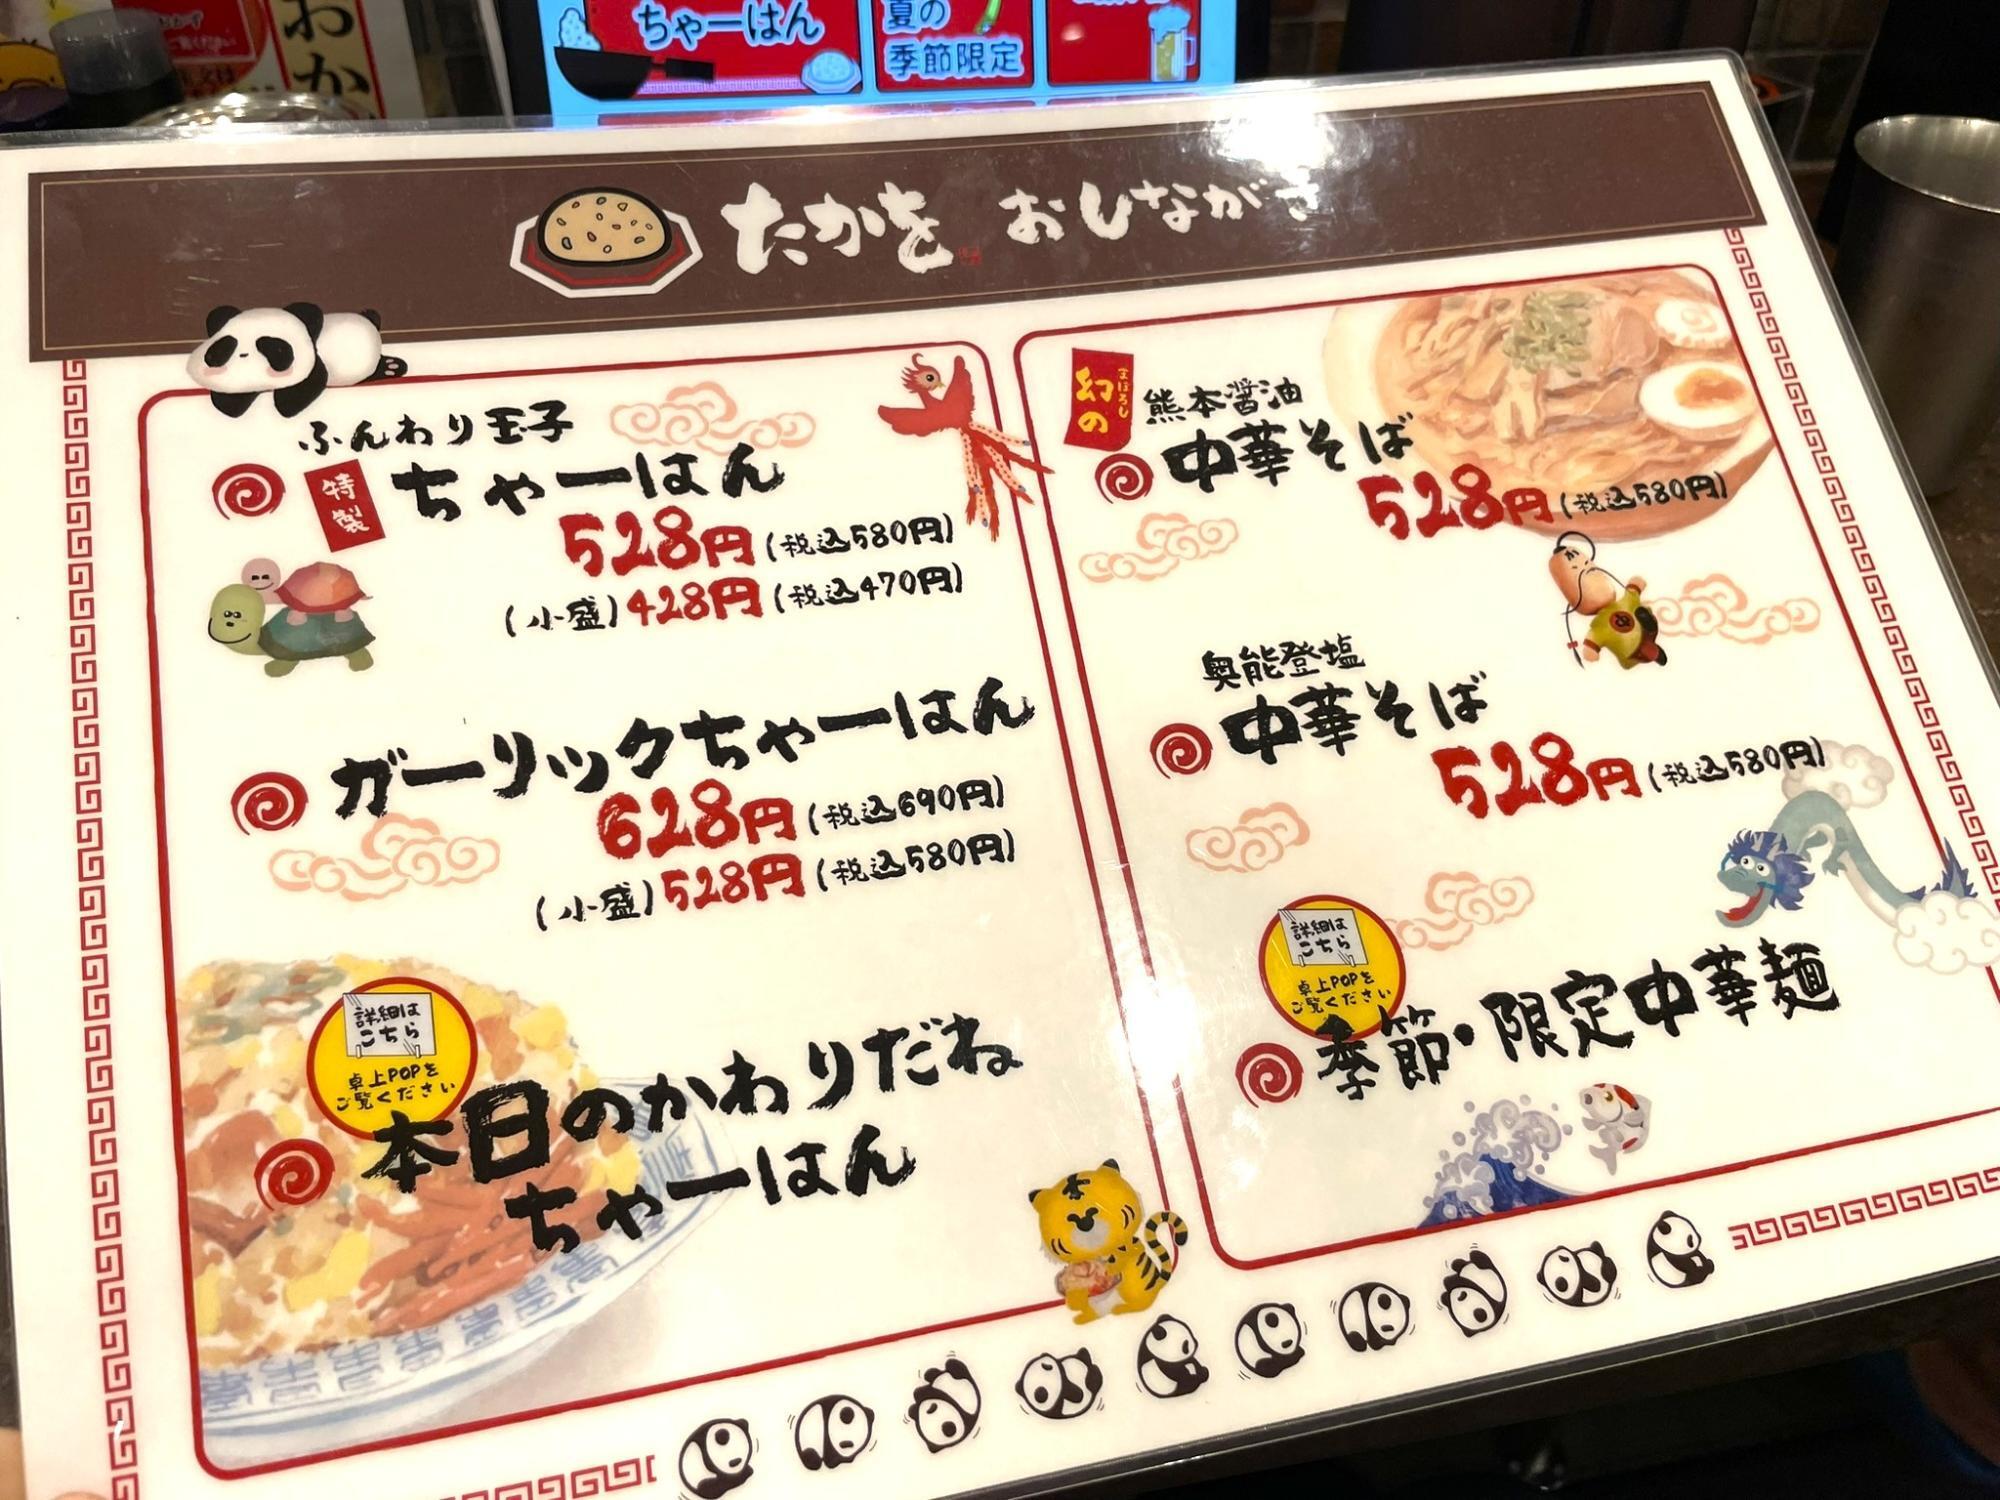 おか
ちゃーはん
夏の
季節限定
たかを おしながき
ふんわり玉子
特製
ちゃーはん
528円(税込580円)
(小盛)428円(税込470円)
ガーリックちゃーはん
628円(税込690円)
(小盛)528円(税込580円)
詳細は
こちら
卓上POPを
ご覧ください
本日のかわりだね
ちゃーはん
まぼろし
幻の
熊本醤油
中華そば
528円(税込580円)
奥能登塩
中華そば
528円(税込580円)
詳細は
こちら
卓上POPを
ご覧ください
季節・限定中華麺